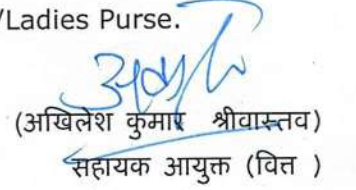 /Ladies Purse.
(अखिलेश कुमार श्रीवास्तव)
सहायक आयुक्त (वित्त )